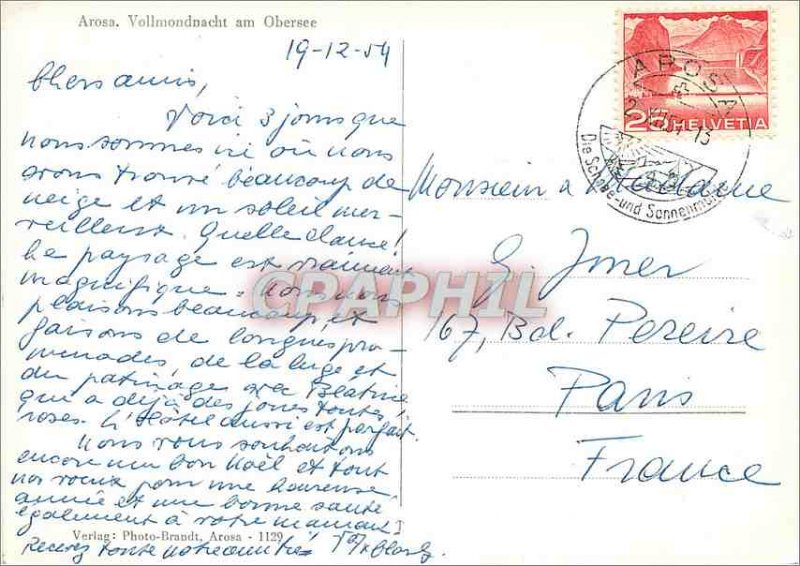 Arosa. Vollmondnacht am Obersee
19-12-54
Chers amis,
Voici 3 jours que
nous sommes ici où nous
avons trouvé beaucoup de
neige et un soleil mer-
veilleux. Quelle chance!
Le paysage est vraiment
magnifique. Nous nous
plaisons beaucoup, et
faisons de longues pro-
menades, de la luge et
du patinage avec Béatrice
qui a déjà des joues toutes
roses. L'Hôtel aussi est parfait.
Nous vous souhaitons
encore un bon Noël et tout
nos voeux pour une heureuse
année et une bonne santé
également à votre maman!
Recevez toute notre amitié
Verlag: Photo-Brandt, Arosa - 1129
HELVETIA
25
AROSA
Die Schnee- und Sonnen
Monsieur & Madame
G.
167, Bd. Pereire
Paris
France
CPAPHIL